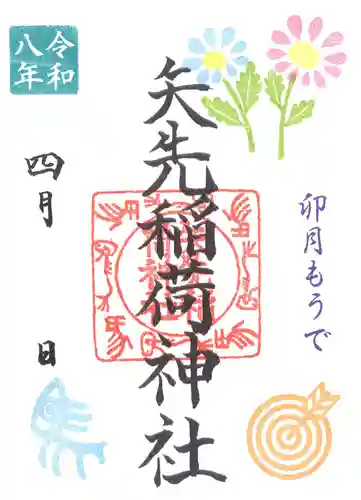 令和
八年
卯月もうで
矢先稲荷神社
四月
日